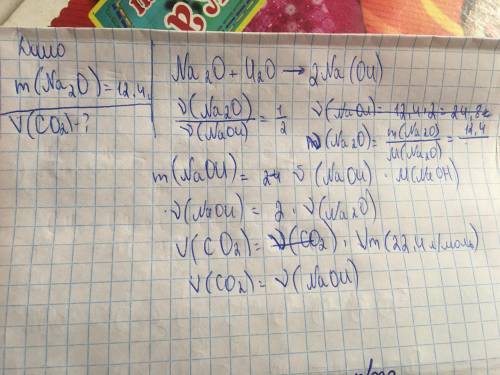 Дано
m(Na₂O) = 12,4
V(CO₂) - ?
Na₂O + H₂O → 2Na(OH)
ν(Na₂O)/ν(NaOH) = 1/2
ν(NaOH) = 12,4·2 = 24,8
ν(Na₂O) = m(Na₂O)/M(Na₂O) = 12,4
m(NaOH) = ν(NaOH) · M(NaOH)
·ν(NaOH) = 2 · ν(Na₂O)
V(CO₂) = ν(CO₂) · Vm(22,4 л/моль)
ν(CO₂) = ν(NaOH)